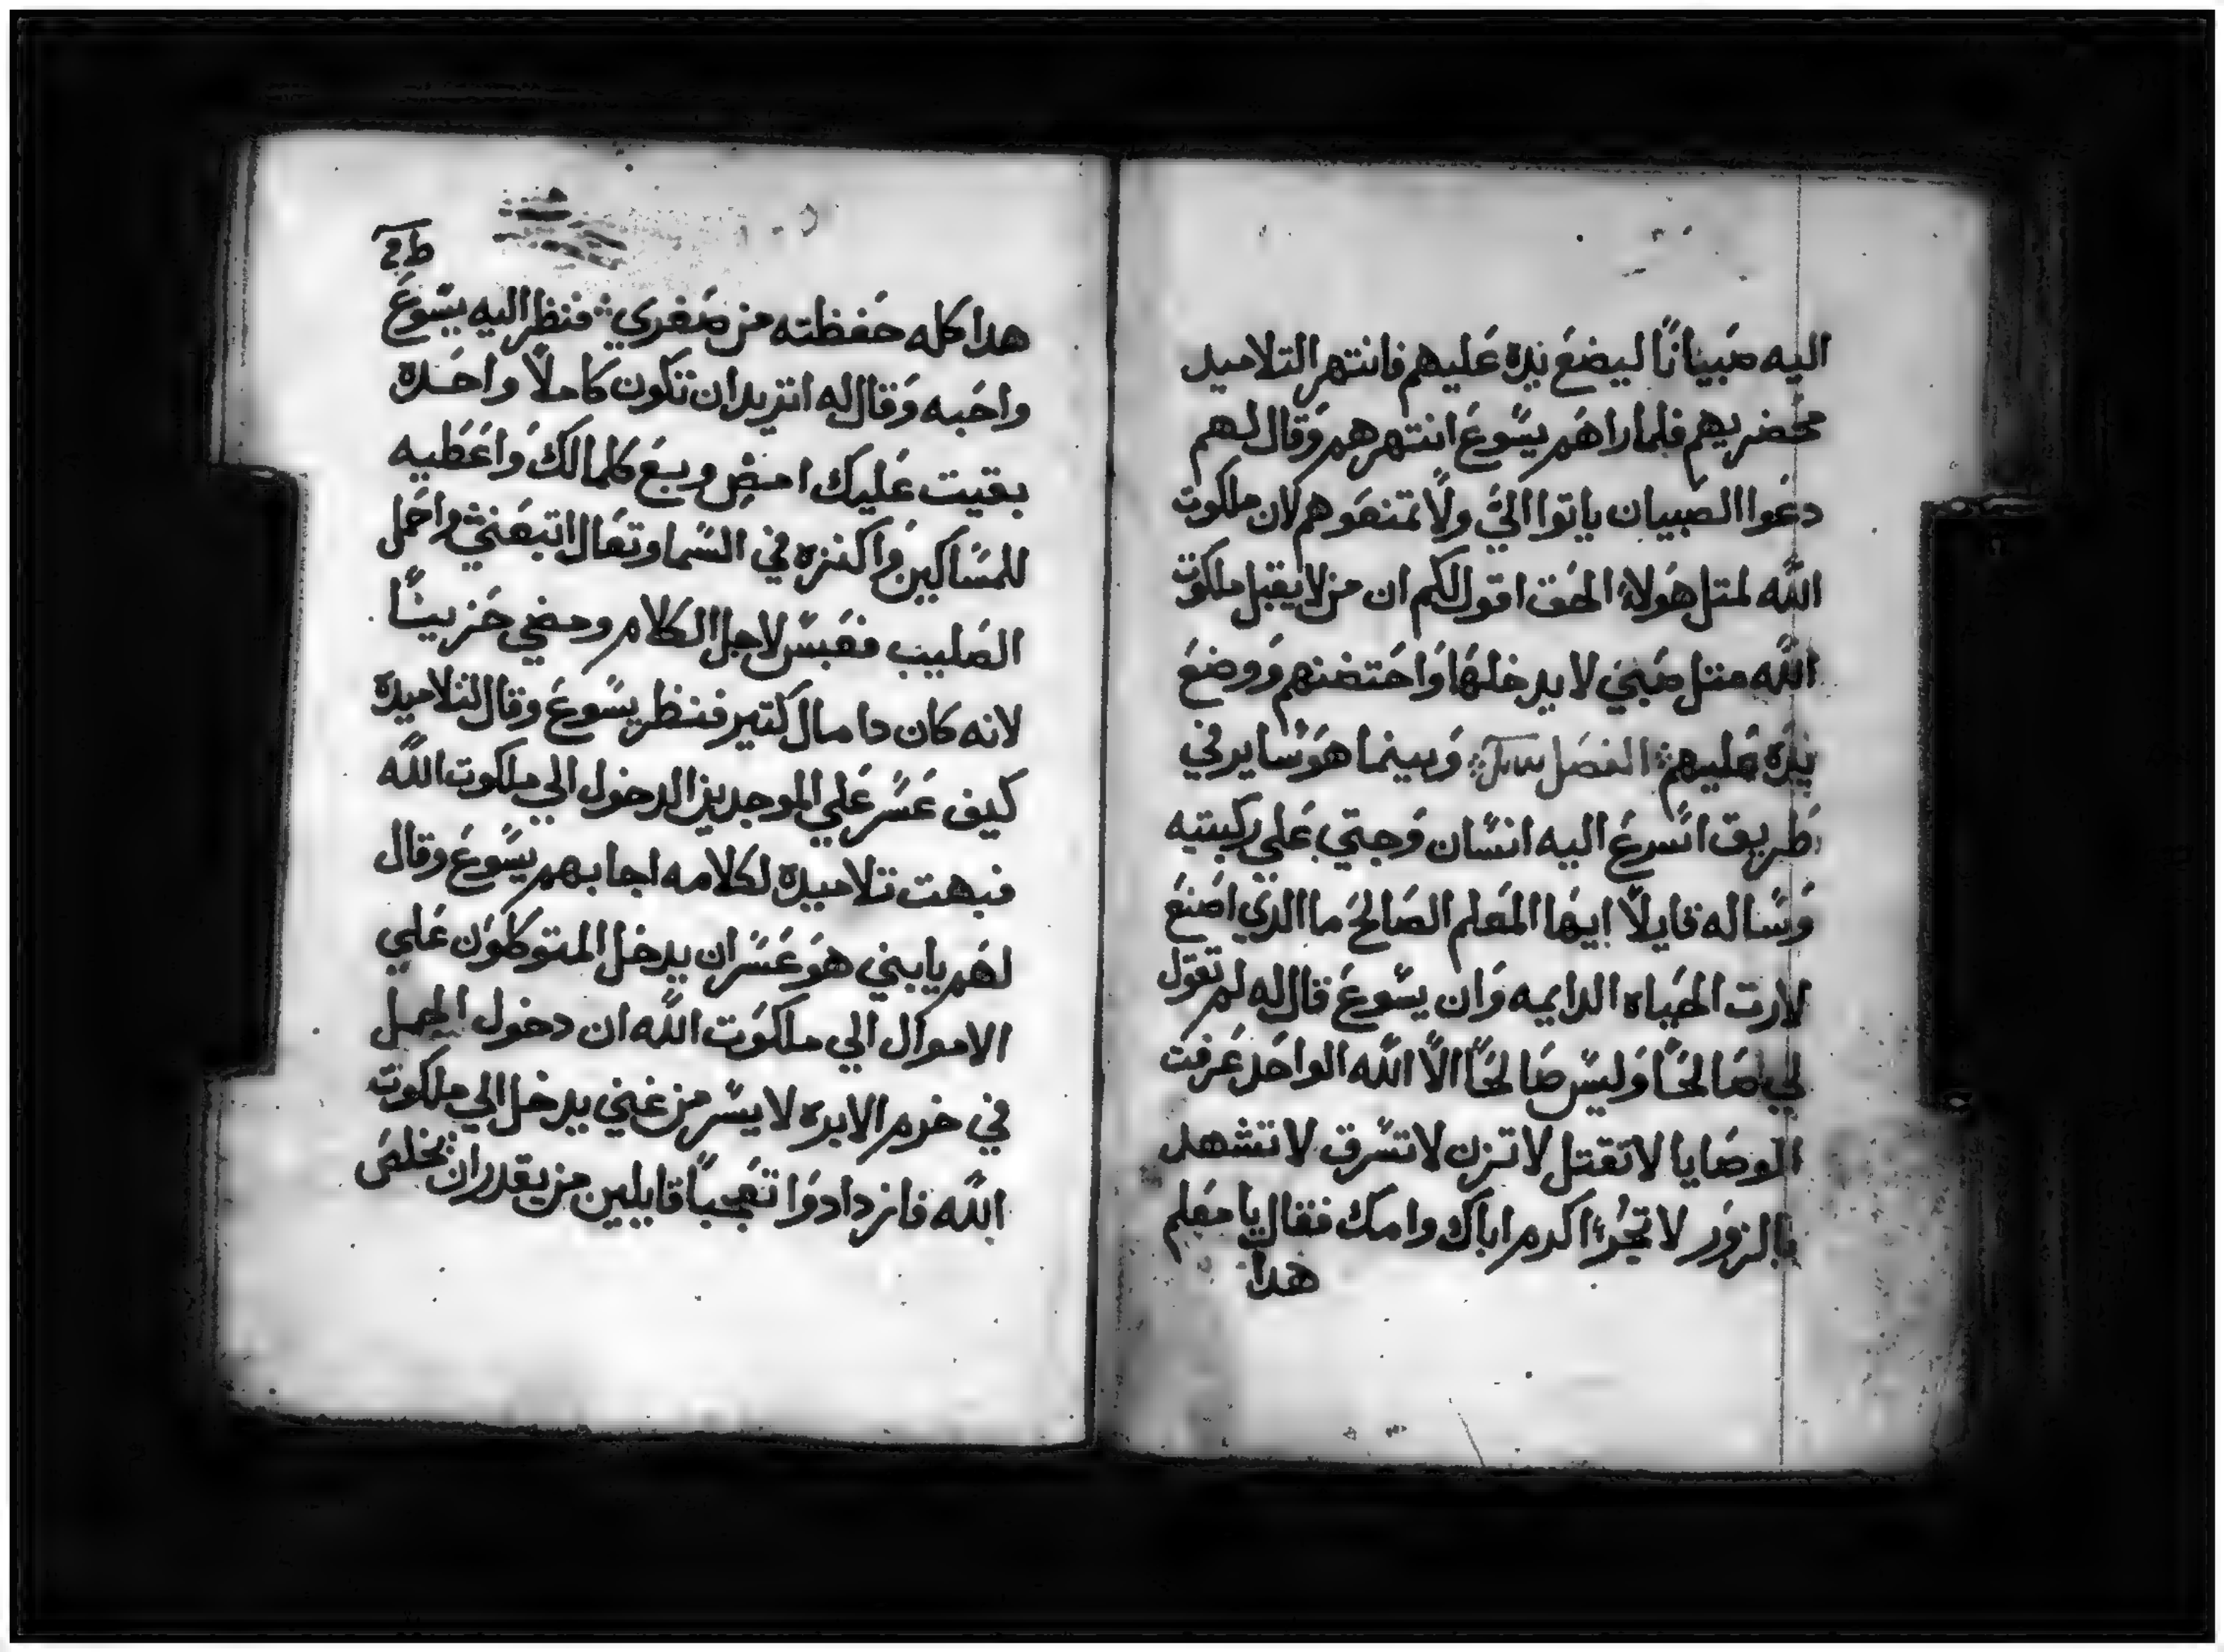 اليه صَبيانًا ليضعَ يده عَليهم فانتهر التلاميد
محضريهم فلما راهَم يسُوعَ انتهرهم وَقال لهم
دعَوا الصَبيان ياتوا اليَّ ولا تمنعَوهم لان ملكوت
الله لمتل هَولاء الحَق اقول لكم ان من لا يقبل ملكوت
الله متل صَبيَ لا يدخلهَا وَاحَتضنهم وَوضعَ
يدَه عَليهم الفصَل وَبينما هوَ سَاير في
طَريق اسَرعَ اليه انسَان وَجتي عَلي ركبتيه
وَسَاله قايلا ايهَا المعَلم الصَالحَ ما الدي اصَنعَ
لارت الحَياه الدايمه وَان يسُوعَ قال له لم تقول
لي صَالحًا وَليسَ صَالحًا الا الله الواحَد عَرفت
الوصَايا لا تقتل لا تزن لا تسَرق لا تشهد
بالزوَر لا تجُر اكرم اباك وامك فقال يا معَلم
هدا
هدا كله حَفظته من صَغري فنظر اليه يسُوعَ
واحَبه وَقال له اتريد ان تكون كاملاً واحَده
بقيت عَليك امض وبعَ كلما لك وَاعَطيه
للمسَاكين وَاكنزه في السَما وتعَال اتبعَني واحَمل
الصَليب فعَبسَ لاجل الكلام ومضي حَزيناً
لانه كان دا مال كتير فنظر يسُوعَ وقال لتلاميده
كيف عَسَر عَلي الموجدين الدخول الي ملكوت الله
فبهت تلاميده لكلامه اجابهم يسُوعَ وقال
لهَم يا بني هوَ عَسَر ان يدخل المتوكلوَن عَلي
الاموال الي ملكوَت الله ان دخول الجمل
في خرم الابره لايسَر من غني يدخل الي ملكوت
الله فازدادوَا تعَجباً قايلين من يقدر ان يخلصَ